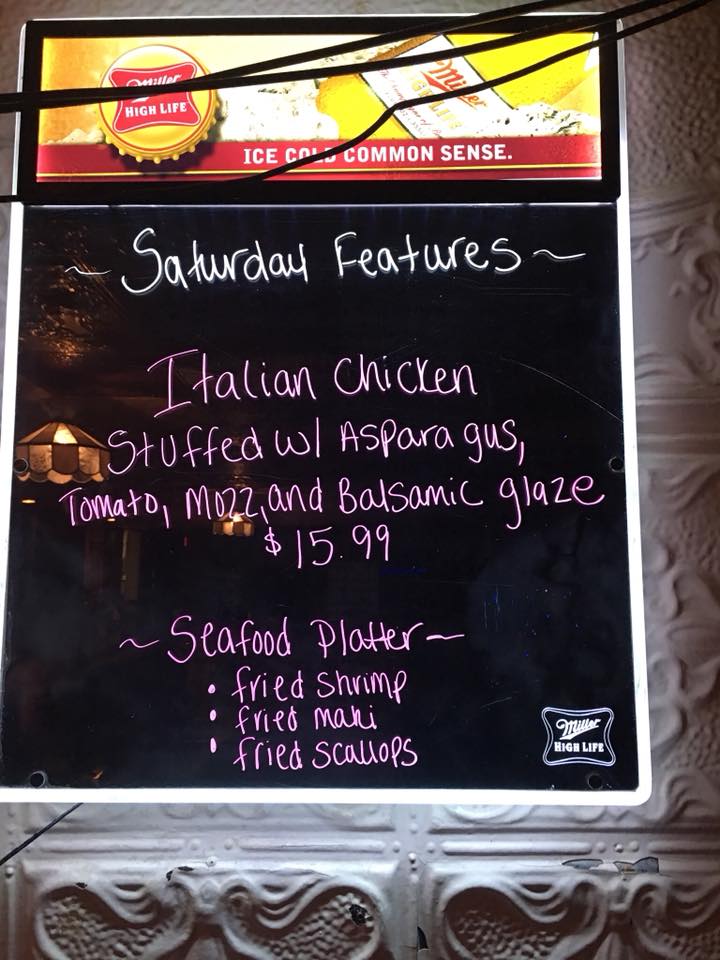 Miller
HIGH LIFE
Miller
HIGH LIFE
ICE COLD COMMON SENSE.
~ Saturday Features ~
Italian Chicken
Stuffed w/ Asparagus,
Tomato, Mozz, and Balsamic glaze
$15.99
~ Seafood Platter ~
• fried shrimp
• fried mahi
• fried scallops
Miller
HIGH LIFE